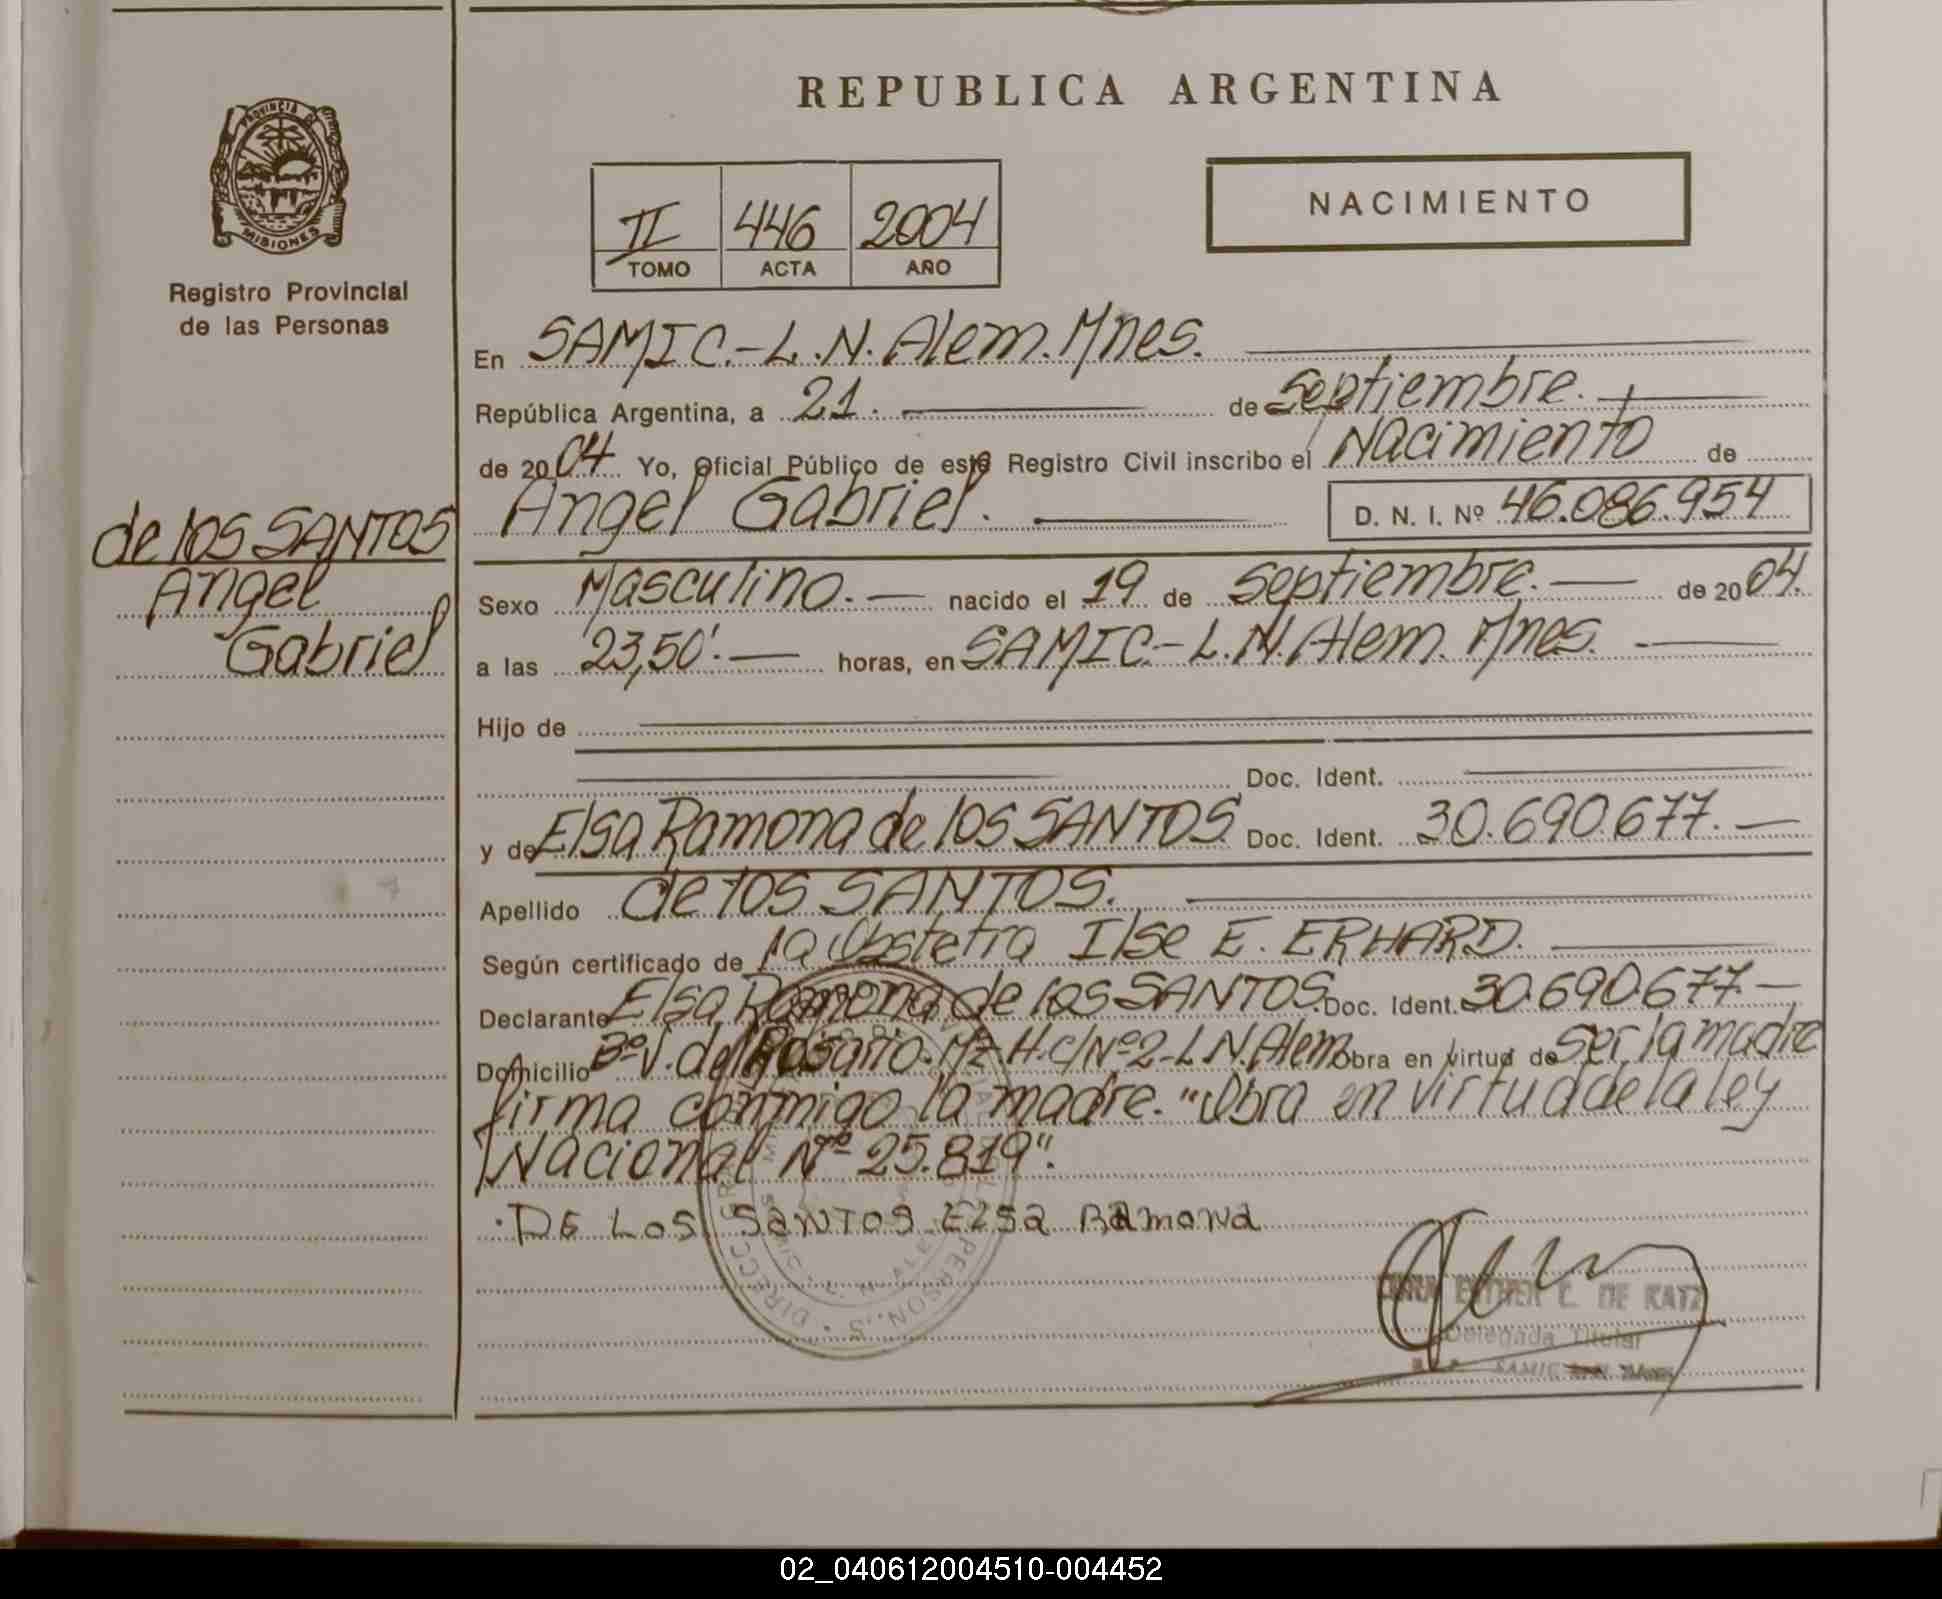 REPUBLICA ARGENTINA
PROVINCIA DE
MISIONES
Registro Provincial
de las Personas
II 446 2004
TOMO ACTA AÑO
NACIMIENTO
En SAMIC.-L.N. Alem. Mnes.
República Argentina, a 21. de Septiembre.
de 2004 Yo, Oficial Público de este Registro Civil inscribo el Nacimiento de
Angel Gabriel. D. N. I. Nº 46.086.954
de los SANTOS
Angel
Gabriel
Sexo Masculino. nacido el 19 de Septiembre. de 2004.
a las 23,50'. horas, en SAMIC.-L.N. Alem. Mnes.
Hijo de
Doc. Ident.
y de Elsa Ramona de los SANTOS Doc. Ident. 30.690.677.
Apellido de los SANTOS.
Según certificado de la Obstetra Ilse E. ERHARD.
Declarante Elsa Ramona de los SANTOS. Doc. Ident. 30.690.677.
Domicilio Bº V. del Rosario. Mz. H. c/Nº 2-L.N. Alem Obra en virtud de ser la madre
firma conmigo la madre. "Obra en virtud de la ley
Nacional Nº 25.819".
DE LOS SANTOS ELSA RAMONA
ESTHER C. DE KATZ
Delegada Titular
SAMIC
02_040612004510-004452